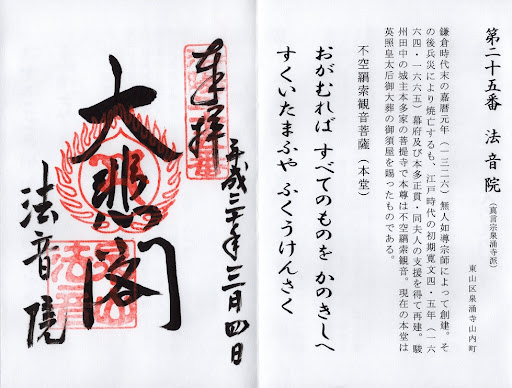 第二十五番 法音院(真言宗泉涌寺派)
東山区泉涌寺山内町
鎌倉時代末の嘉暦元年(一三二六)無人如導宗師によって創建。そ
の後兵災により焼亡するも、江戸時代の初期寛文四・五年(一六
六四・一六六五)幕府及び本多正貫・同夫人の支援を得て再建。駿
州田中の城主本多家の菩提寺で本尊は不空羂索観音。現在の本堂は
英照皇太后御大葬の御須屋を賜ったものである。
不空羂索観音菩薩(本堂)
おがむれば すべてのものを かのきしへ
すくいたまふや ふくうけんさく
奉拝
平成二十年三月四日
大悲閣
法音院